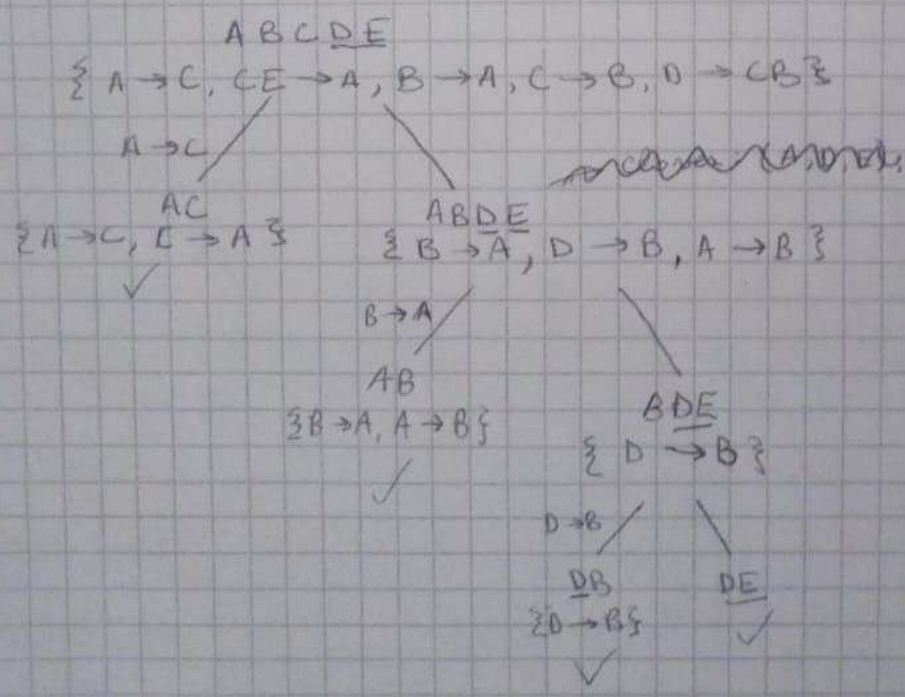 ABCDE
{ A → C, CE → A, B → A, C → B, D → CB }
A → C
AC
{ A → C, C → A }
ABDE
{ B → A, D → B, A → B }
B → A
AB
{ B → A, A → B }
BDE
{ D → B }
D → B
DB
{ D → B }
DE